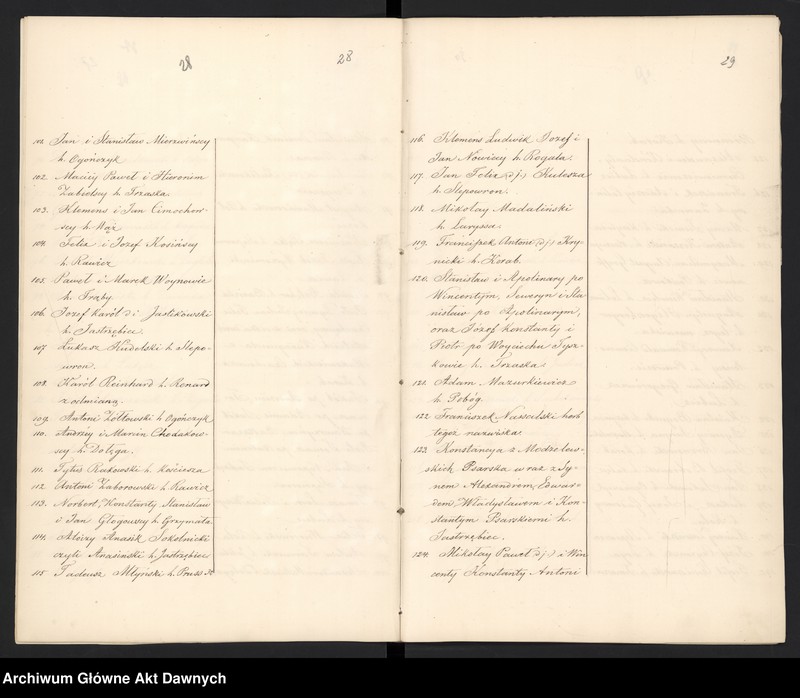 28
28
101. Jan i Stanisław Mierzwińscy
h. Ogończyk
102. Maciéy Paweł i Hieronim
Zabielscy h. Trzaska.
103. Klemens i Jan Cimochow-
scy h. Wąż
104. Felix i Jozef Kosińscy
h. Rawicz
105. Paweł i Marek Woynowie
h. Trąby
106. Jozef Karól 2 i Jasilkowski
h. Jastrzębiec.
107. Łukasz Kudelski h. Slepo-
wron.
108. Karól Reinhard h. Renard
z odmianą.
109. Antoni Żółtowski h. Ogończyk
110. Andrzéy i Marcin Chodakow-
scy h. Dołęga.
111. Tytus Rutkowski h. Kościesza
112. Antoni Zaborowski h. Rawicz
113. Norbert, Konstanty Stanisław
i Jan Głogowscy h. Grzymała.
114. Aloizy Anasik Sokolnicki
czyli Anasiński h. Jastrzębiec
115. Tadeusz Młyński h. Pruss
29
116. Klemens Ludwik Jozef i
Jan Nowiccy h. Rogala.
117. Jan Felix (2 j.) Kulesza
h. Slepowron.
118. Mikołay Madaliński
h. Laryssa.
119. Franciszek Antoni (2 j.) Kry-
nicki h. Korab.
120. Stanisław i Apolinary po
Wincentym, Seweryn i Sta
nisław po Apolinarym,
oraz Józef Konstanty i
Piotr po Woyciechu Tysz-
kowie h. Trzaska.
121. Adam Mazurkiewicz
h. Pobóg.
122 Franciszek Nasielski herb
tegoż nazwiska.
123. Konstancya z Modzelew-
skich Psarska wraz z Sy-
nem Alexandrem, Edwar-
dem, Władysławem i Kon-
stantym Psarskiemi h.
Jastrzębiec.
124. Mikołay Paweł (2 j.) i Win
centy Konstanty Antoni
Archiwum Główne Akt Dawnych